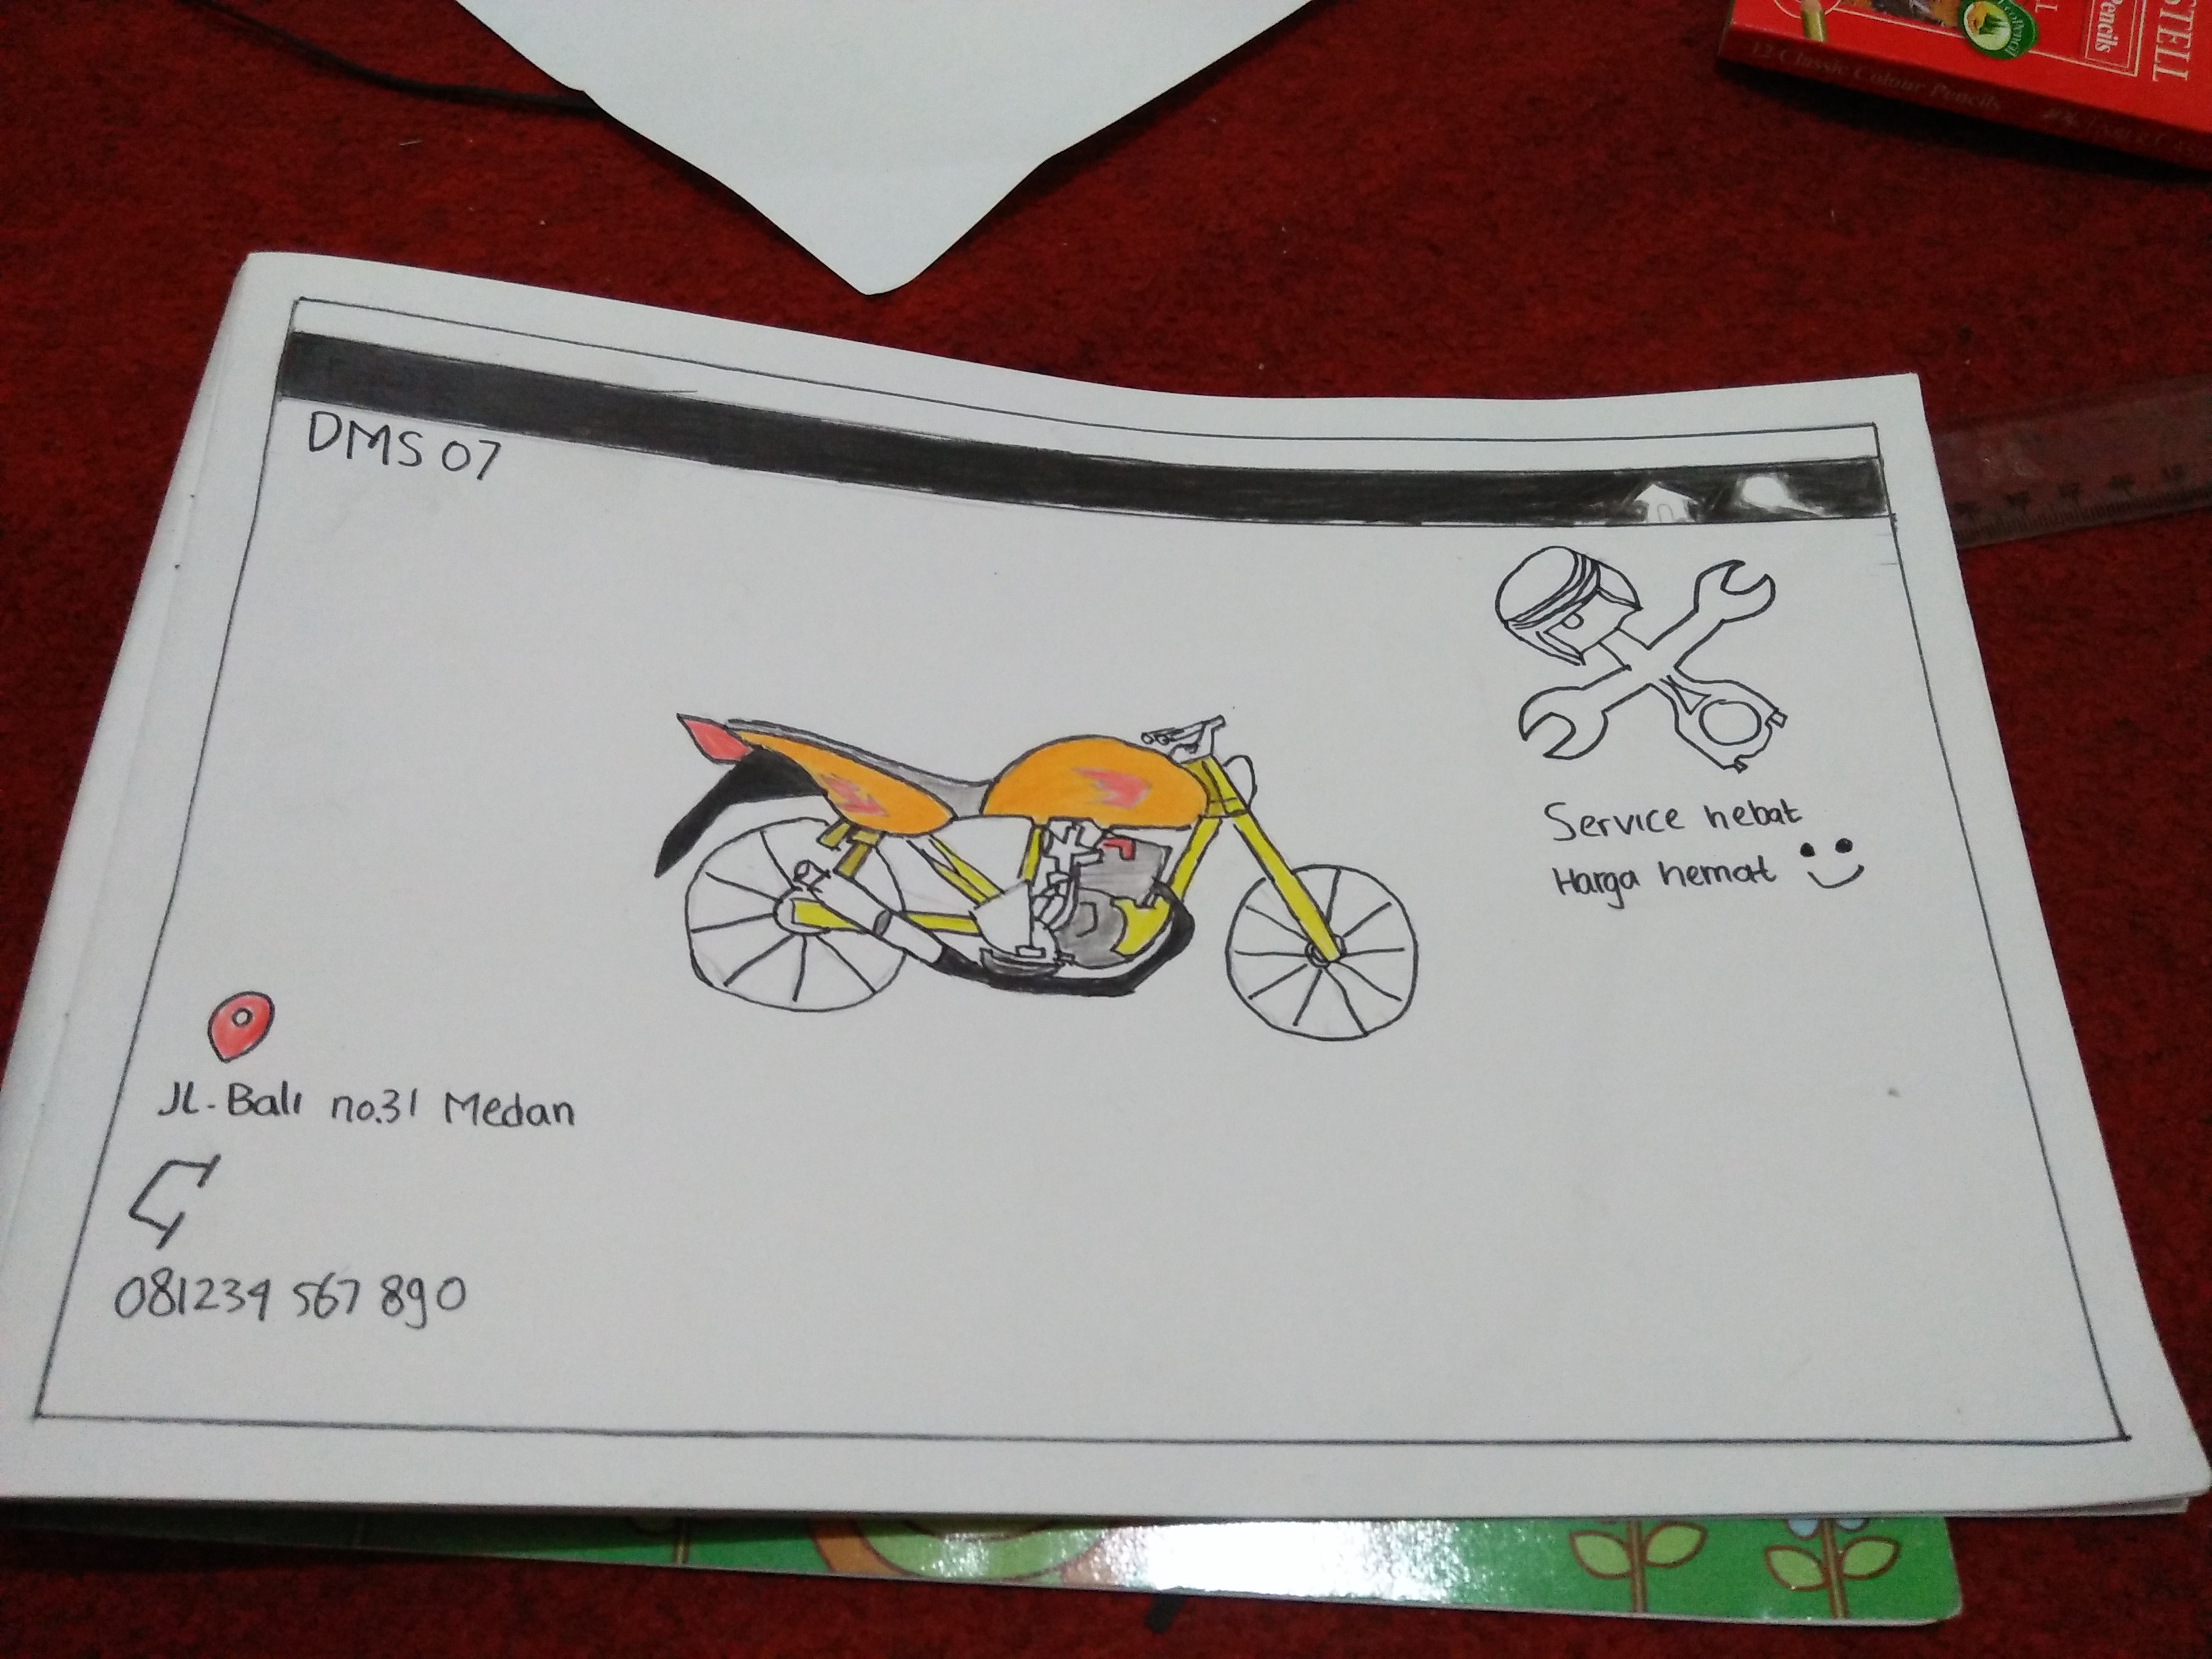 STELL
Pencils
12 Classic Colour Pencils
DMS 07
Service hebat
Harga hemat
JL. Bali no.31 Medan
081234 567 890